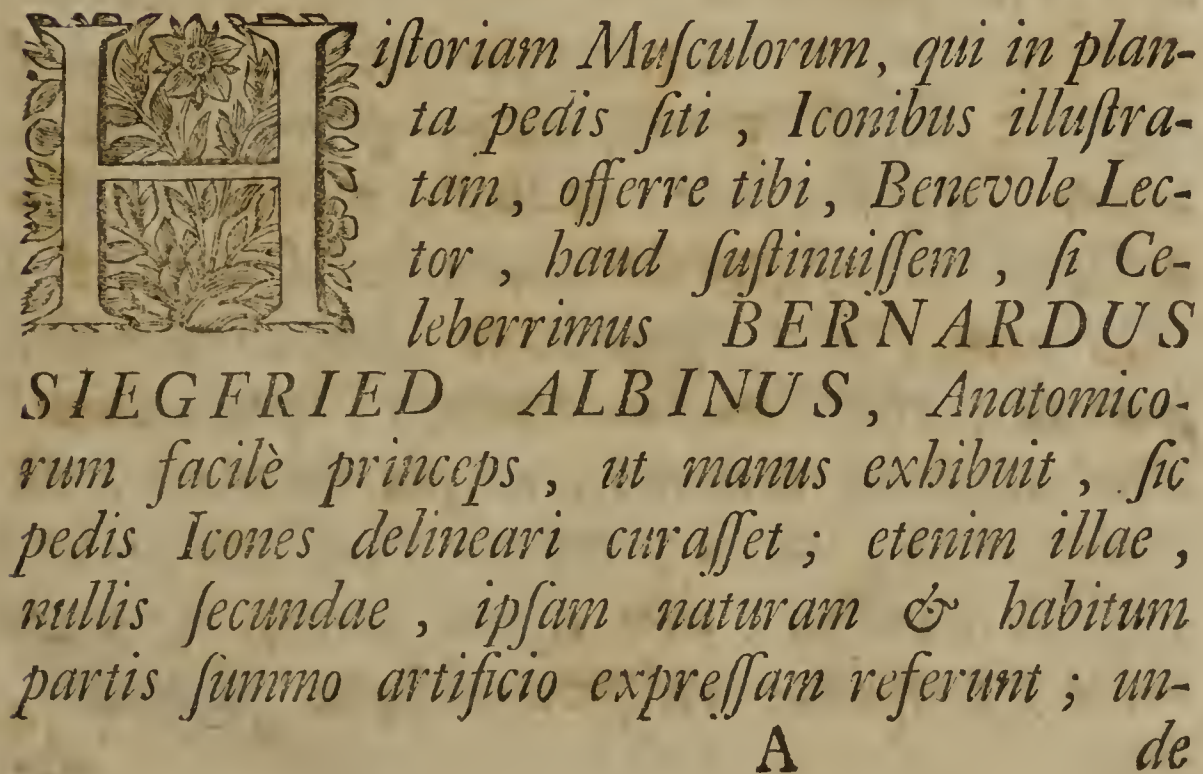 Hiſtoriam Muſculorum, qui in plan-
ta pedis ſiti , Iconibus illuſtra-
tam , offerre tibi , Benevole Lec-
tor , haud ſuſtinuiſſem , ſi Ce-
leberrimus BERNARDUS
SIEGFRIED ALBINUS , Anatomico-
rum facilè princeps , ut manus exhibuit , ſic
pedis Icones delineari curaſſet ; etenim illae ,
nullis ſecundae , ipſam naturam & habitum
partis ſummo artificio expreſſam referunt ; un-
A de